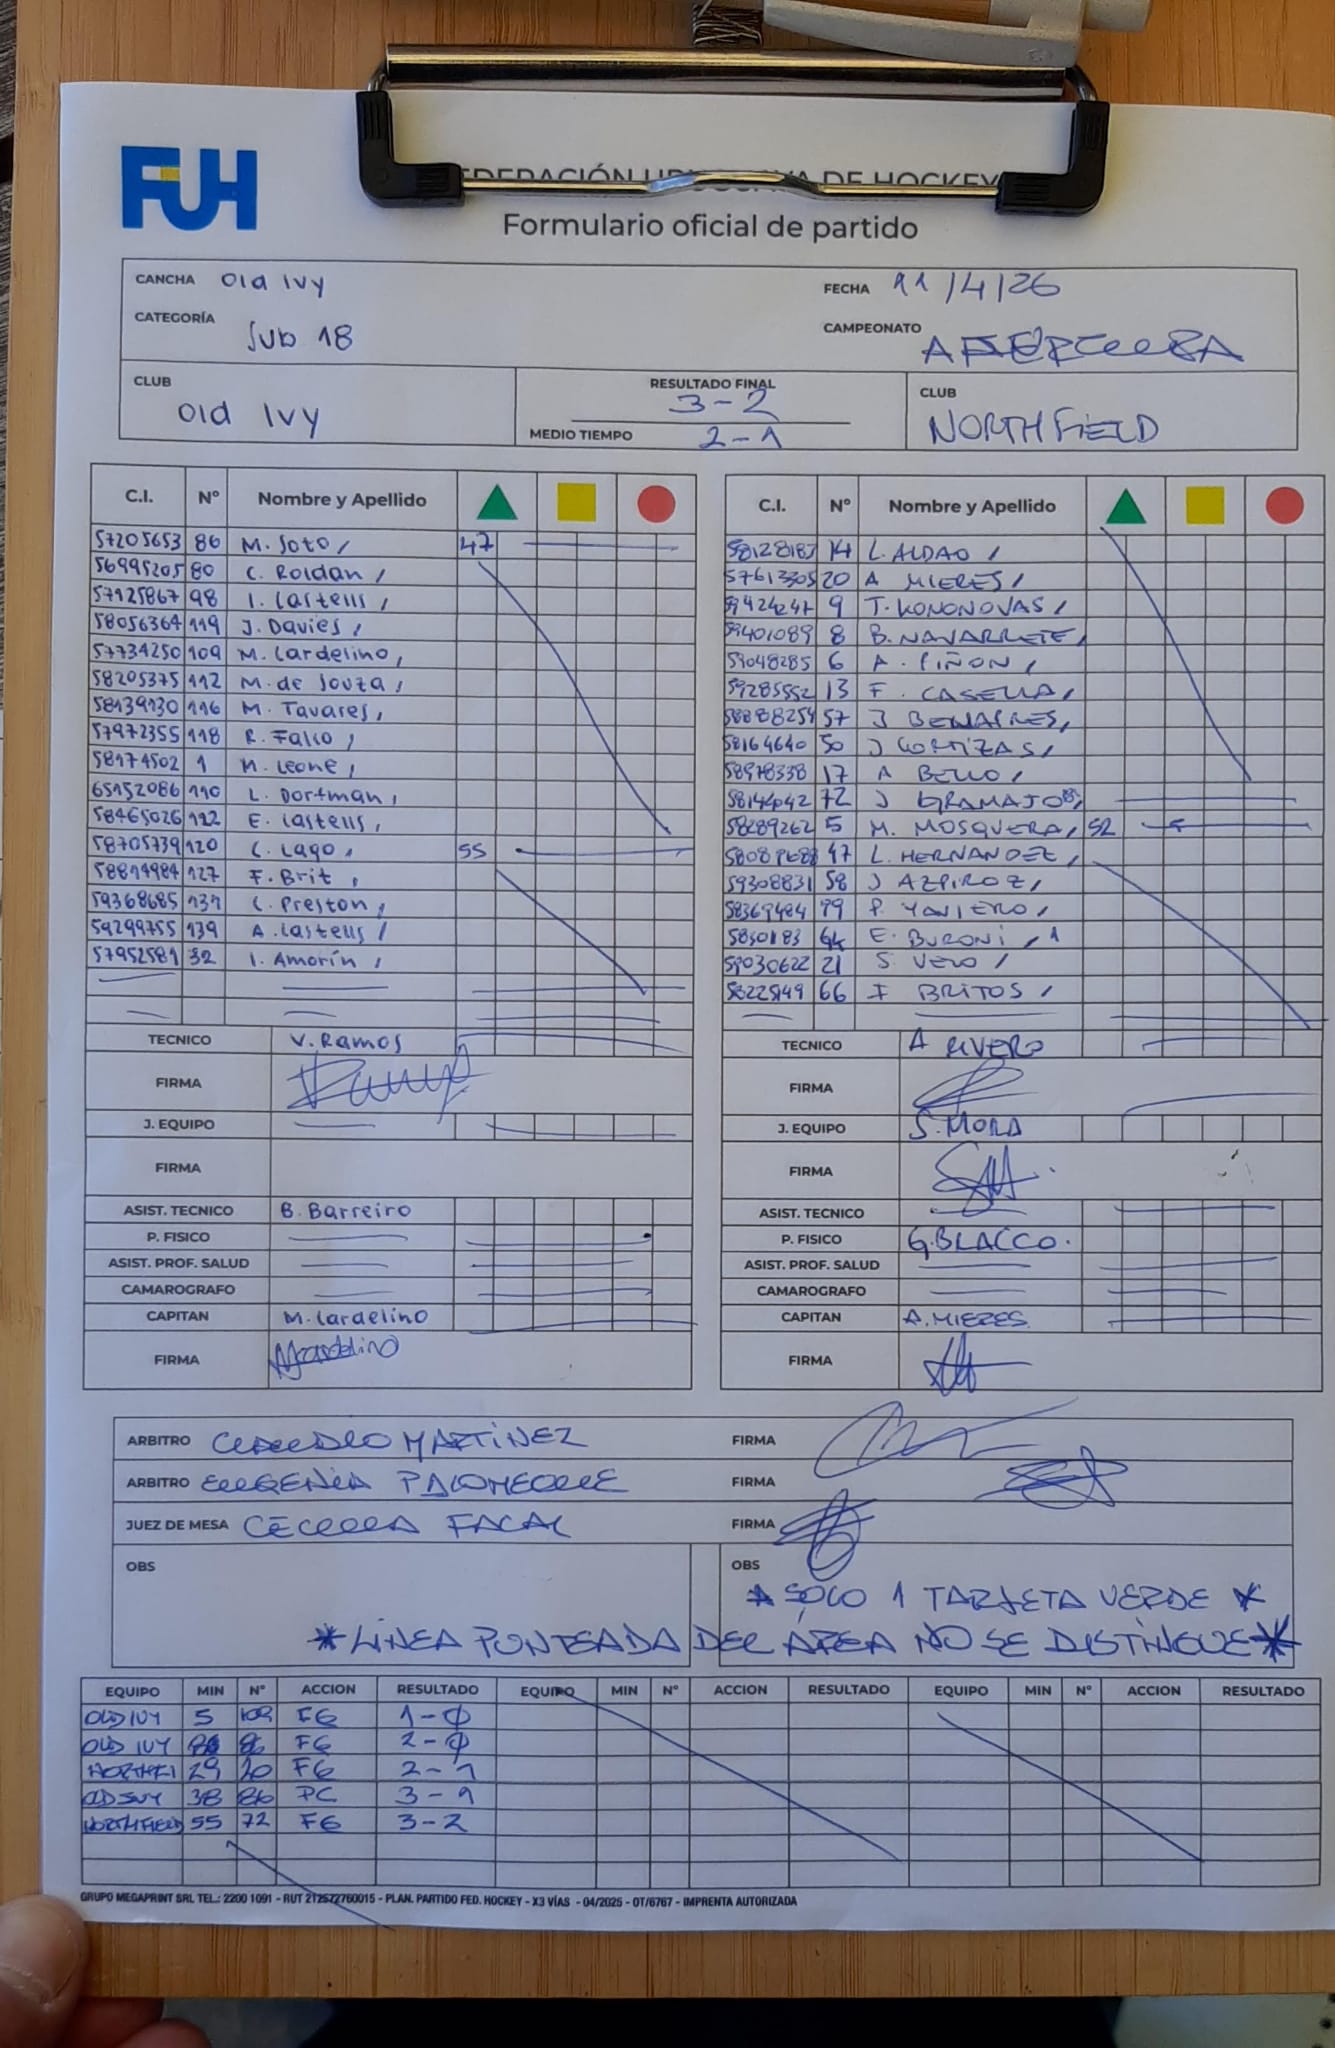 FUH
FEDERACIÓN URUGUAYA DE HOCKEY
Formulario oficial de partido
CANCHA Old Ivy FECHA 11/4/26
CATEGORÍA Sub 18 CAMPEONATO APERTURA
CLUB Old Ivy RESULTADO FINAL 3-2 CLUB NORTHFIELD
MEDIO TIEMPO 2-1
C.I. Nº Nombre y Apellido C.I. Nº Nombre y Apellido
57205653 86 M. Soto, 47
56995205 80 C. Roldan,
57125867 98 I. Castells,
58056364 119 J. Davies,
57734250 109 M. Cardelino,
58205375 112 M. de Souza,
58139130 116 M. Tavares,
57972355 118 R. Falco,
58174502 1 M. Leone,
65152086 110 L. Dorfman,
58465026 122 E. Castells,
58705739 120 C. Lago, 55
58814984 127 F. Brit,
59368685 137 C. Preston,
59299755 139 A. Castells,
57952581 32 I. Amorín,
58128187 14 L. ALDAO,
57613305 20 A MIERES,
59424247 9 T. KONONOVAS,
59401089 8 B. NAVARRETE,
59048285 6 A. PIÑON,
59285552 13 F. CASELLA,
58888254 57 J BENAPRES,
58164640 50 J CORTIZAS,
58978338 17 A BELLO,
58144042 72 J GRAMAJO
58289262 5 M. MOSQUERA, 52
47 L. HERNANDEZ,
59308831 58 J AZPIROZ,
58369484 99 P. YANIERO,
5850183 64 E. BURONI, 1
59030622 21 S. VERO,
58225149 66 F BRITOS,
TECNICO V. Ramos TECNICO A RIVERO
FIRMA FIRMA
J. EQUIPO J. EQUIPO S. MORA
FIRMA FIRMA
ASIST. TECNICO B. Barreiro ASIST. TECNICO
P. FISICO P. FISICO G. BLACCO.
ASIST. PROF. SALUD ASIST. PROF. SALUD
CAMAROGRAFO CAMAROGRAFO
CAPITAN M. Cardelino CAPITAN A. MIERES
FIRMA MCardelino FIRMA
ARBITRO CLAUDIO MARTINEZ FIRMA
ARBITRO EUGENIA PALOMEQUE FIRMA
JUEZ DE MESA CECILIA FACAL FIRMA
OBS OBS
* SOLO 1 TARJETA VERDE *
*LINEA PUNTEADA DEL AREA NO SE DISTINGUE*
EQUIPO MIN Nº ACCION RESULTADO EQUIPO MIN Nº ACCION RESULTADO EQUIPO MIN Nº ACCION RESULTADO
OLD IVY 5 109 FG 1-0
OLD IVY 86 FG 2-0
NORTHFI 29 20 FG 2-1
OLD IVY 38 86 PC 3-1
NORTHFIELD 55 72 FG 3-2
GRUPO MEGAPRINT SRL TEL.: 2200 1091 - RUT 212572760015 - PLAN. PARTIDO FED. HOCKEY - X3 VÍAS - 04/2025 - OT/6767 - IMPRENTA AUTORIZADA